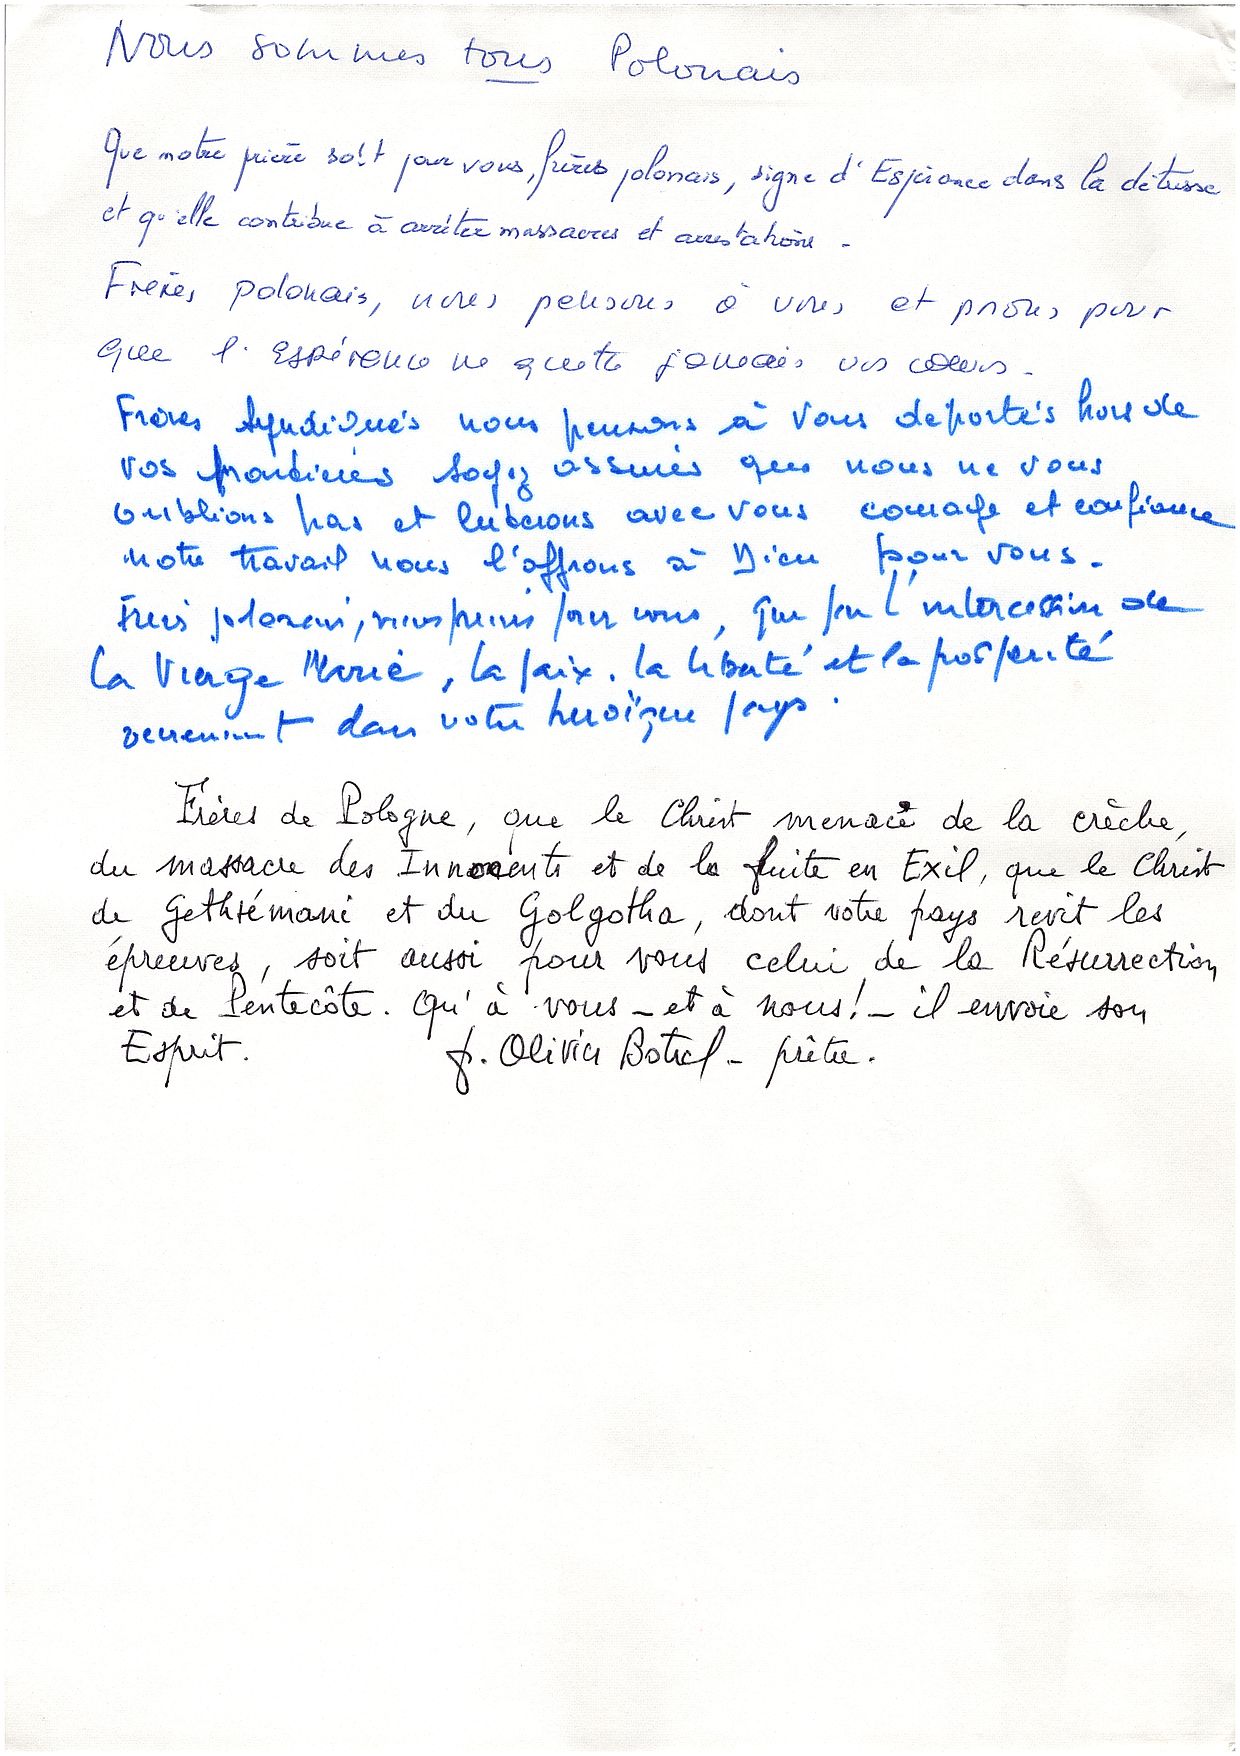 Nous sommes tous Polonais
Que notre prière soit pour vous, frères polonais, signe d'Espérance dans la détresse
et qu'elle contribue à arrêter massacres et arrestations -
Frères polonais, nous pensons à vous et prions pour
que l'Espérance ne quitte jamais vos cœurs.
Frères Syndiqués nous pensons à vous deportés hors de
vos frontières soyez assurés que nous ne vous
oublions pas et luterons avec vous courage et confiance
notre travail nous l'offrons à Dieu pour vous.
Frères polonais, nous prions pour vous, que par l'intercession de
la Vierge Marie, la paix, la liberté et la prospérité
reviennent dans votre heroïque pays.
Frères de Pologne, que le Christ menacé de la crèche,
du massacre des Innocents et de la fuite en Exil, que le Christ
de Gethsémani et du Golgotha, dont votre pays revit les
épreuves, soit aussi pour vous celui de la Résurrection
et de Pentecôte. Qu'à vous - et à nous! - il envoie son
Esprit. p. Olivier Botrel - prêtre.